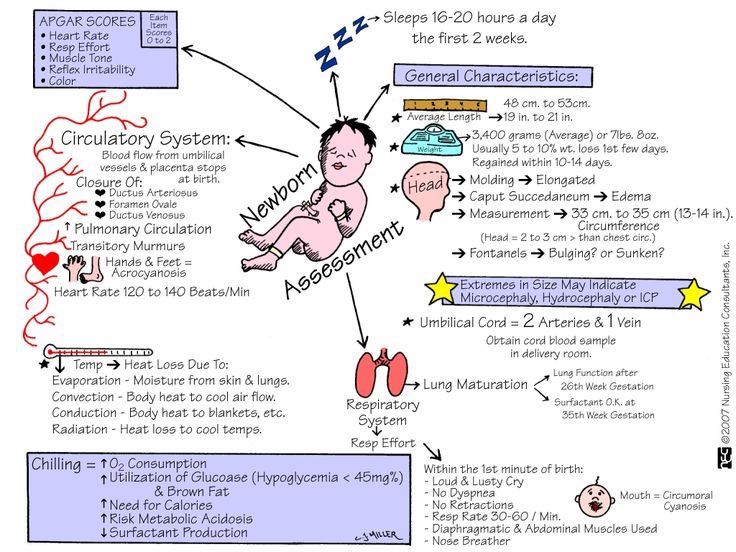 APGAR SCORES
• Heart Rate
• Resp Effort
• Muscle Tone
• Reflex Irritability
• Color
Each
Item
Scores
0 to 2
Sleeps 16-20 hours a day
the first 2 weeks.
Z Z Z
General Characteristics:
48 cm. to 53cm.
★ Average Length → 19 in. to 21 in.
★ Weight
3,400 grams (Average) or 7lbs. 8oz.
Usually 5 to 10% wt. loss 1st few days.
Regained within 10-14 days.
★ Head → Molding → Elongated
→ Caput Succedaneum → Edema
→ Measurement → 33 cm. to 35 cm (13-14 in.).
Circumference
(Head = 2 to 3 cm > than chest circ.)
→ Fontanels → Bulging? or Sunken?
Extremes in Size May Indicate
Microcephaly, Hydrocephaly or ICP
★ Umbilical Cord = 2 Arteries & 1 Vein
Obtain cord blood sample
in delivery room.
Newborn
Assessment
Circulatory System:
Blood flow from umbilical
vessels & placenta stops
at birth.
Closure Of:
❤ Ductus Arteriosus
❤ Foramen Ovale
❤ Ductus Venosus
↑ Pulmonary Circulation
Transitory Murmurs
Hands & Feet =
Acrocyanosis
Heart Rate 120 to 140 Beats/Min
★ ↓ Temp → Heat Loss Due To:
Evaporation - Moisture from skin & lungs.
Convection - Body heat to cool air flow.
Conduction - Body heat to blankets, etc.
Radiation - Heat loss to cool temps.
Chilling = ↑ O2 Consumption
↑ Utilization of Glucoase (Hypoglycemia < 45mg%)
& Brown Fat
↑ Need for Calories
↑ Risk Metabolic Acidosis
↓ Surfactant Production
CJ MILLER
Respiratory
System
→ Lung Maturation
Lung Function after
26th Week Gestation
Surfactant O.K. at
35th Week Gestation
↓
Resp Effort
Within the 1st minute of birth:
- Loud & Lusty Cry
- No Dyspnea
- No Retractions
- Resp Rate 30-60 / Min.
- Diaphragmatic & Abdominal Muscles Used
- Nose Breather
Mouth = Circumoral
Cyanosis
©2007 Nursing Education Consultants, Inc.